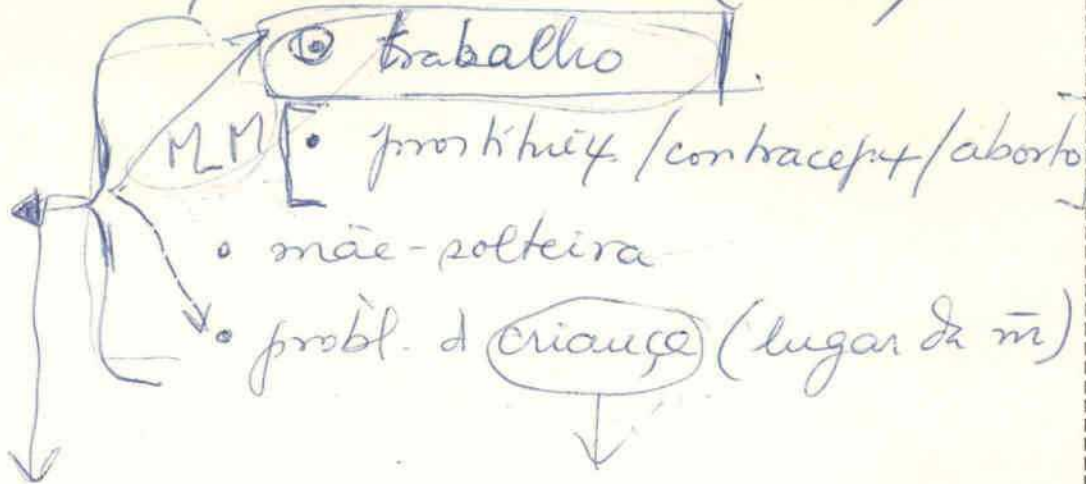 trabalho
MM • prostituiç. / contracepç / aborto
• mãe-solteira
• probl. d criança (lugar da m̄)